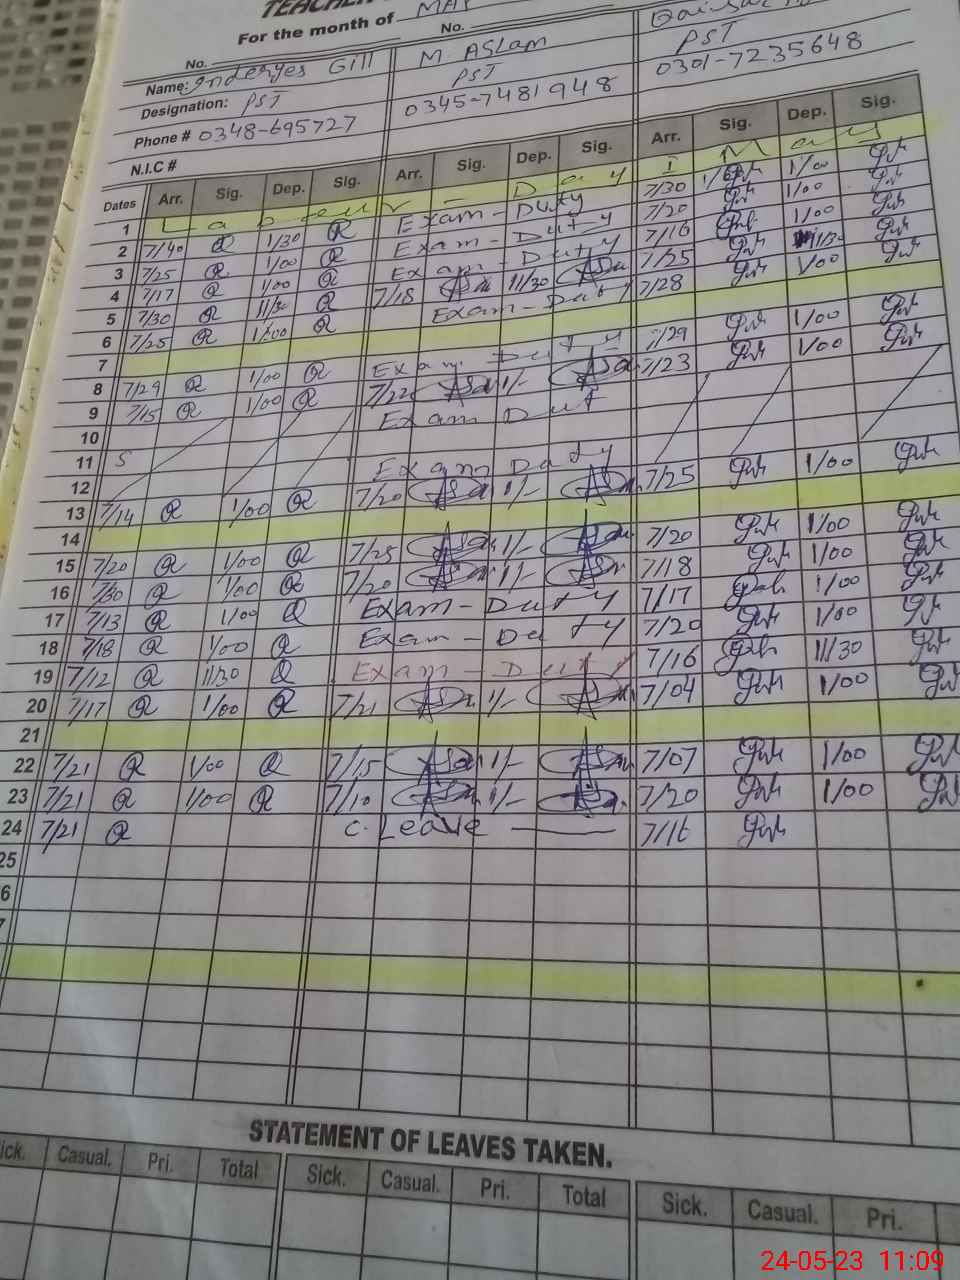 TEACHER
For the month of MAY
No. No.
Name: Inderyes Gill M. ASLAM
Designation: PST PST PST
Phone # 0348-695727 0345-7481948 0301-7235648
N.I.C #
Dates Arr. Sig. Dep. Sig. Arr. Sig. Dep. Sig. Arr. Sig. Dep. Sig.
1 Labour - Day 1 May
2 7/40 1/30 Exam - Duty 7/30 1/00
3 7/25 1/00 Exam - Duty 7/20 1/00
4 7/17 1/00 Exam - Duty 7/16 1/00
5 7/30 11/30 7/18 11/30 7/25 11/30
6 7/25 1/00 Exam - Duty 7/28 1/00
7
8 7/29 1/00 Exam Duty 7/29 1/00
9 7/15 1/00 7/22 1/- 7/23 1/00
10 Exam Dut
11 S
12 Exam Duty
13 7/14 1/00 7/20 1/- 7/25 1/00
14
15 7/20 1/00 7/25 1/- 7/20 1/00
16 7/30 1/00 7/20 1/- 7/18 1/00
17 7/13 1/00 Exam - Duty 7/17 1/00
18 7/18 1/00 Exam - Duty 7/20 1/00
19 7/12 11/30 Exam - Duty 7/16 11/30
20 7/17 1/00 7/21 1/- 7/04 1/00
21
22 7/21 1/00 7/15 1/- 7/07 1/00
23 7/21 1/00 7/10 1/- 7/20 1/00
24 7/21 C. Leave 7/16
25
6
7
STATEMENT OF LEAVES TAKEN.
ick. Casual. Pri. Total Sick. Casual. Pri. Total Sick. Casual. Pri.
24-05-23 11:09